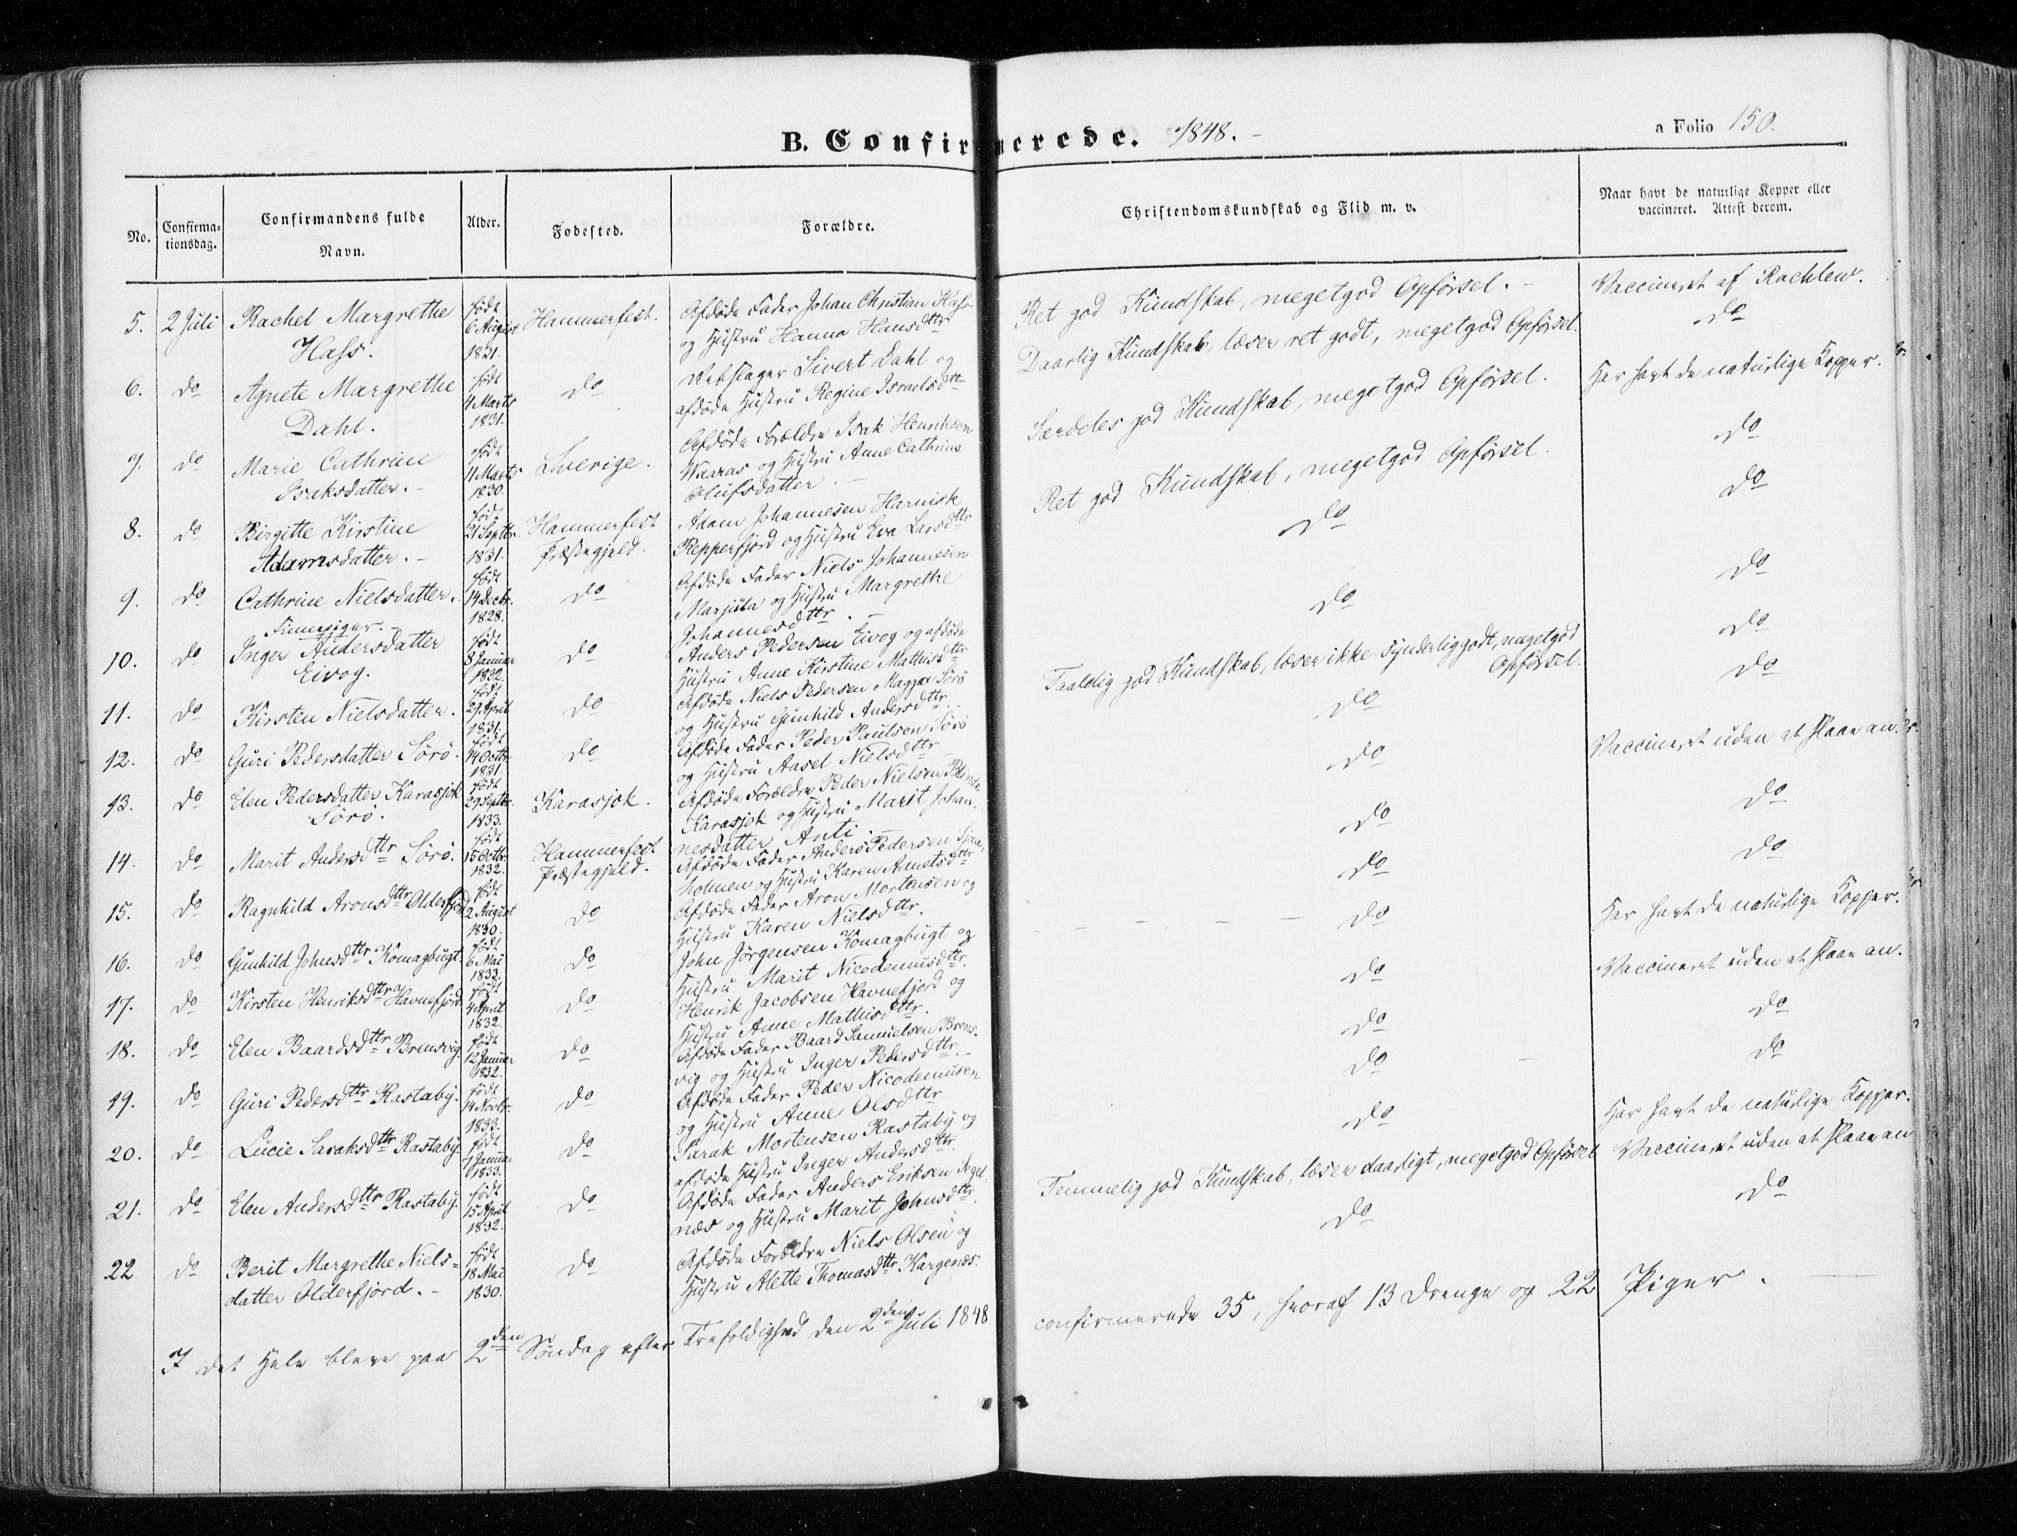 B. Confirmerede. 1848. -
a Folio 150.
No.
Confirma-
tionsdag.
Confirmandens fulde
Navn.
Alder.
Fødested.
Forældre.
Christendomskundskab og Flid m. v.
Naar havt de naturlige Kopper eller
vaccineret. Attest derom.
5. 2 Juli Rachel Margrethe Hass. født 6 August 1821. Hammerfest. Afdøde Fader Johan Christian Hass og Hustru Hanna Hansdttr Ret god Kundskab, megetgod Opførsel. - Vaccineret af Rachlew.
6. do Agnete Margrethe Dahl. født 4 Marts 1831. do Rebslager Sivert Dahl og afdøde Hustru Regine Israelsdttr Daarlig Kundskab, læser ret godt, megetgod Opførsel. do
7. do Marie Cathrine Isaksdatter. - født 11 Marts 1830. Sverige. Afdøde Forældre Isak Henriksen Waaras og Hustru Anne Cathrine Olufsdatter. - Særdeles god Kundskab, megetgod Opførsel. Har havt de naturlige Kopper.
8. do Birgitte Kirstine Adamsdatter. - født 21 Septbr. 1831. Hammerfest Præstegjeld. Adam Johannesen Harnisk Repperfjord og Hustru Eva Larsdttr Ret god Kundskab, megetgod Opførsel. do
9. do Cathrine Nielsdatter. født 14 Decbr. 1828. do Afdøde Fader Niels Johannesen Marjuta og Hustru Margrethe Johannesdttr. - do do
Finnepiger. -
10. do Inger Andersdatter Eivog. født 8 Januar 1832. do Anders Pedersen Eivog og afdøde Hustru Anne Kirstine Mathisdttr do do
11. do Kirsten Nielsdatter. født 29 April 1831. do Afdøde Niels Pedersen Sörö og Hustru Gunhild Andersdttr. Taalelig god Kundskab, læser ikke synderlig godt, megetgod Opførsel. do
12. do Guri Pedersdatter Sörö. født 14 Octbr. 1831. do Afdøde Fader Peder Paulsen Sörö og Hustru Aasel Nielsdttr do do
13. do Elen Pedersdatter Karasjok Sörö. født 29 Septbr. 1833. Karasjok. Afdøde Forældre Peder Nielsen Blinde Karasjok og Hustru Marit Johannesdatter Anti do Vaccineret uden at slaae an.
14. do Marit Andersdttr Sörö. født 15 Octbr. 1832. Hammerfest Præstegjeld. Afdøde Fader Anders Pedersen holmen og Hustru Karen Ametsdttr do do
15. do Ragnhild Aronsdttr Olderfjord født 2 August 1830. do Afdøde Fader Aron Mortensen og Hustru Karen Nielsdttr. do do
16. do Gunhild Johnsdttr Komagbugt født 6 Mai 1833. do John Jørgensen Komagbugt og Hustru Marit Nicodemusdttr. - - - - do Har havt de naturlige Kopper.
17. do Kirsten Henriksdttr Havnefjord født 4 April 1832. do Henrik Jacobsen Havnefjord og Hustru Anne Mathisdttr. do Vaccineret uden at slaae an.
18. do Elen Baardsdttr Brensvig født 12 Januar 1832. do Afdøde Fader Baard Samuelsen Brensvig og Hustru Inger Pedersdttr. - do do
19. do Guri Pedersdttr Rastaby. født 14 Novbr. 1833. do Afdøde Fader Peder Nicodemusen og Hustru Anne Olsdttr do do
20. do Lucie Saraksdttr Rastaby. født 1 Januar 1833. do Sarak Mortensen Rastaby og afdøde Hustru Inger Andersdttr. do Har havt de naturlige Kopper.
21. do Elen Andersdttr Rastaby. født 15 April 1832. do Afdøde Fader Anders Eriksen næs og Hustru Marit Johnsdttr. Temmelig god Kundskab, læser daarligt, megetgod Opførsel Vaccineret uden at slaae an
22 do Berit Margrethe Nielsdatter Olderfjord. - født 18 Mai 1830. do Afdøde Forældre Niels Olsen og Hustru Alette Thomasdttr Kargenæs. do do
I det Hele bleve paa 2den Søndag efter Trefoldighed den 2den Juli 1848 confirmerede 35, hvoraf 13 Drenge og 22 Piger. -